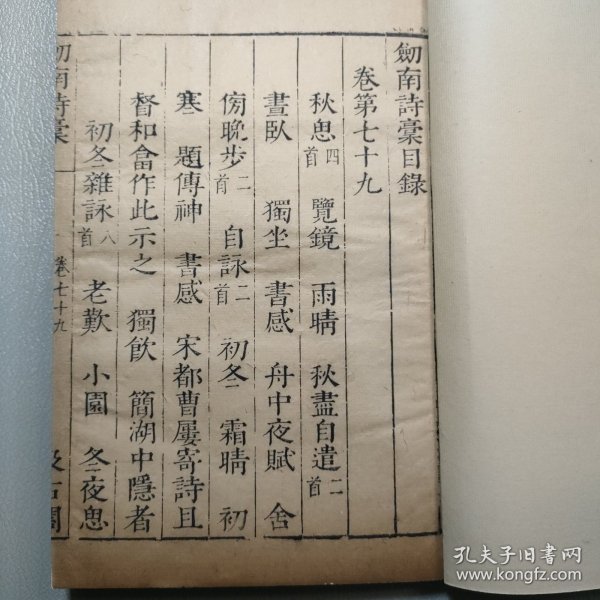 劒南詩稾目錄
卷第七十九
秋思四首 覽鏡 雨晴 秋盡自遣二首
晝臥 獨坐 書感 舟中夜賦 舍
傍晚步二首 自詠二首 初冬 霜晴 初
寒 題傳神 書感 宋都曹屢寄詩且
督和畣作此示之 獨飲 簡湖中隱者
初冬雜詠八首 老歎 小園 冬夜思
劒南詩稾 卷七十九 一 汲古閣
孔夫子旧书网
www.kongfz.com